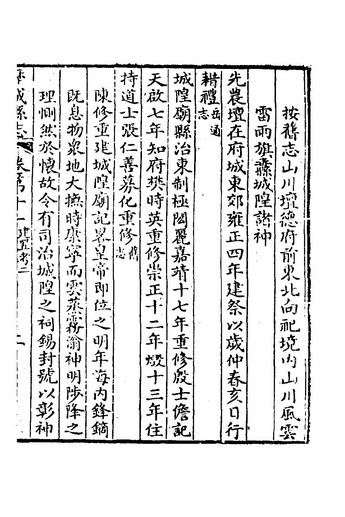 按舊志山川壇德府前東北向祀境內山川風雲
雷雨旗纛城隍諸神
先農壇在府城東郊雍正四年建祭以歲仲春亥日行
耤禮岳通志
城隍廟縣治東制極閎麗嘉靖十七年重修殷士儋記
天啟七年知府樊時英重修崇正十二年燬十三年住
持道士張仁善募化重修舊志
陳修重建城隍廟記畧皇帝即位之明年海內鋒鏑
既息物眾地大撫時康寧而雲蒸霧瀹神明陟降之
理惻然於懷故令有司治城隍之祠錫封號以彰神
城縣志 卷第十一 建置考二